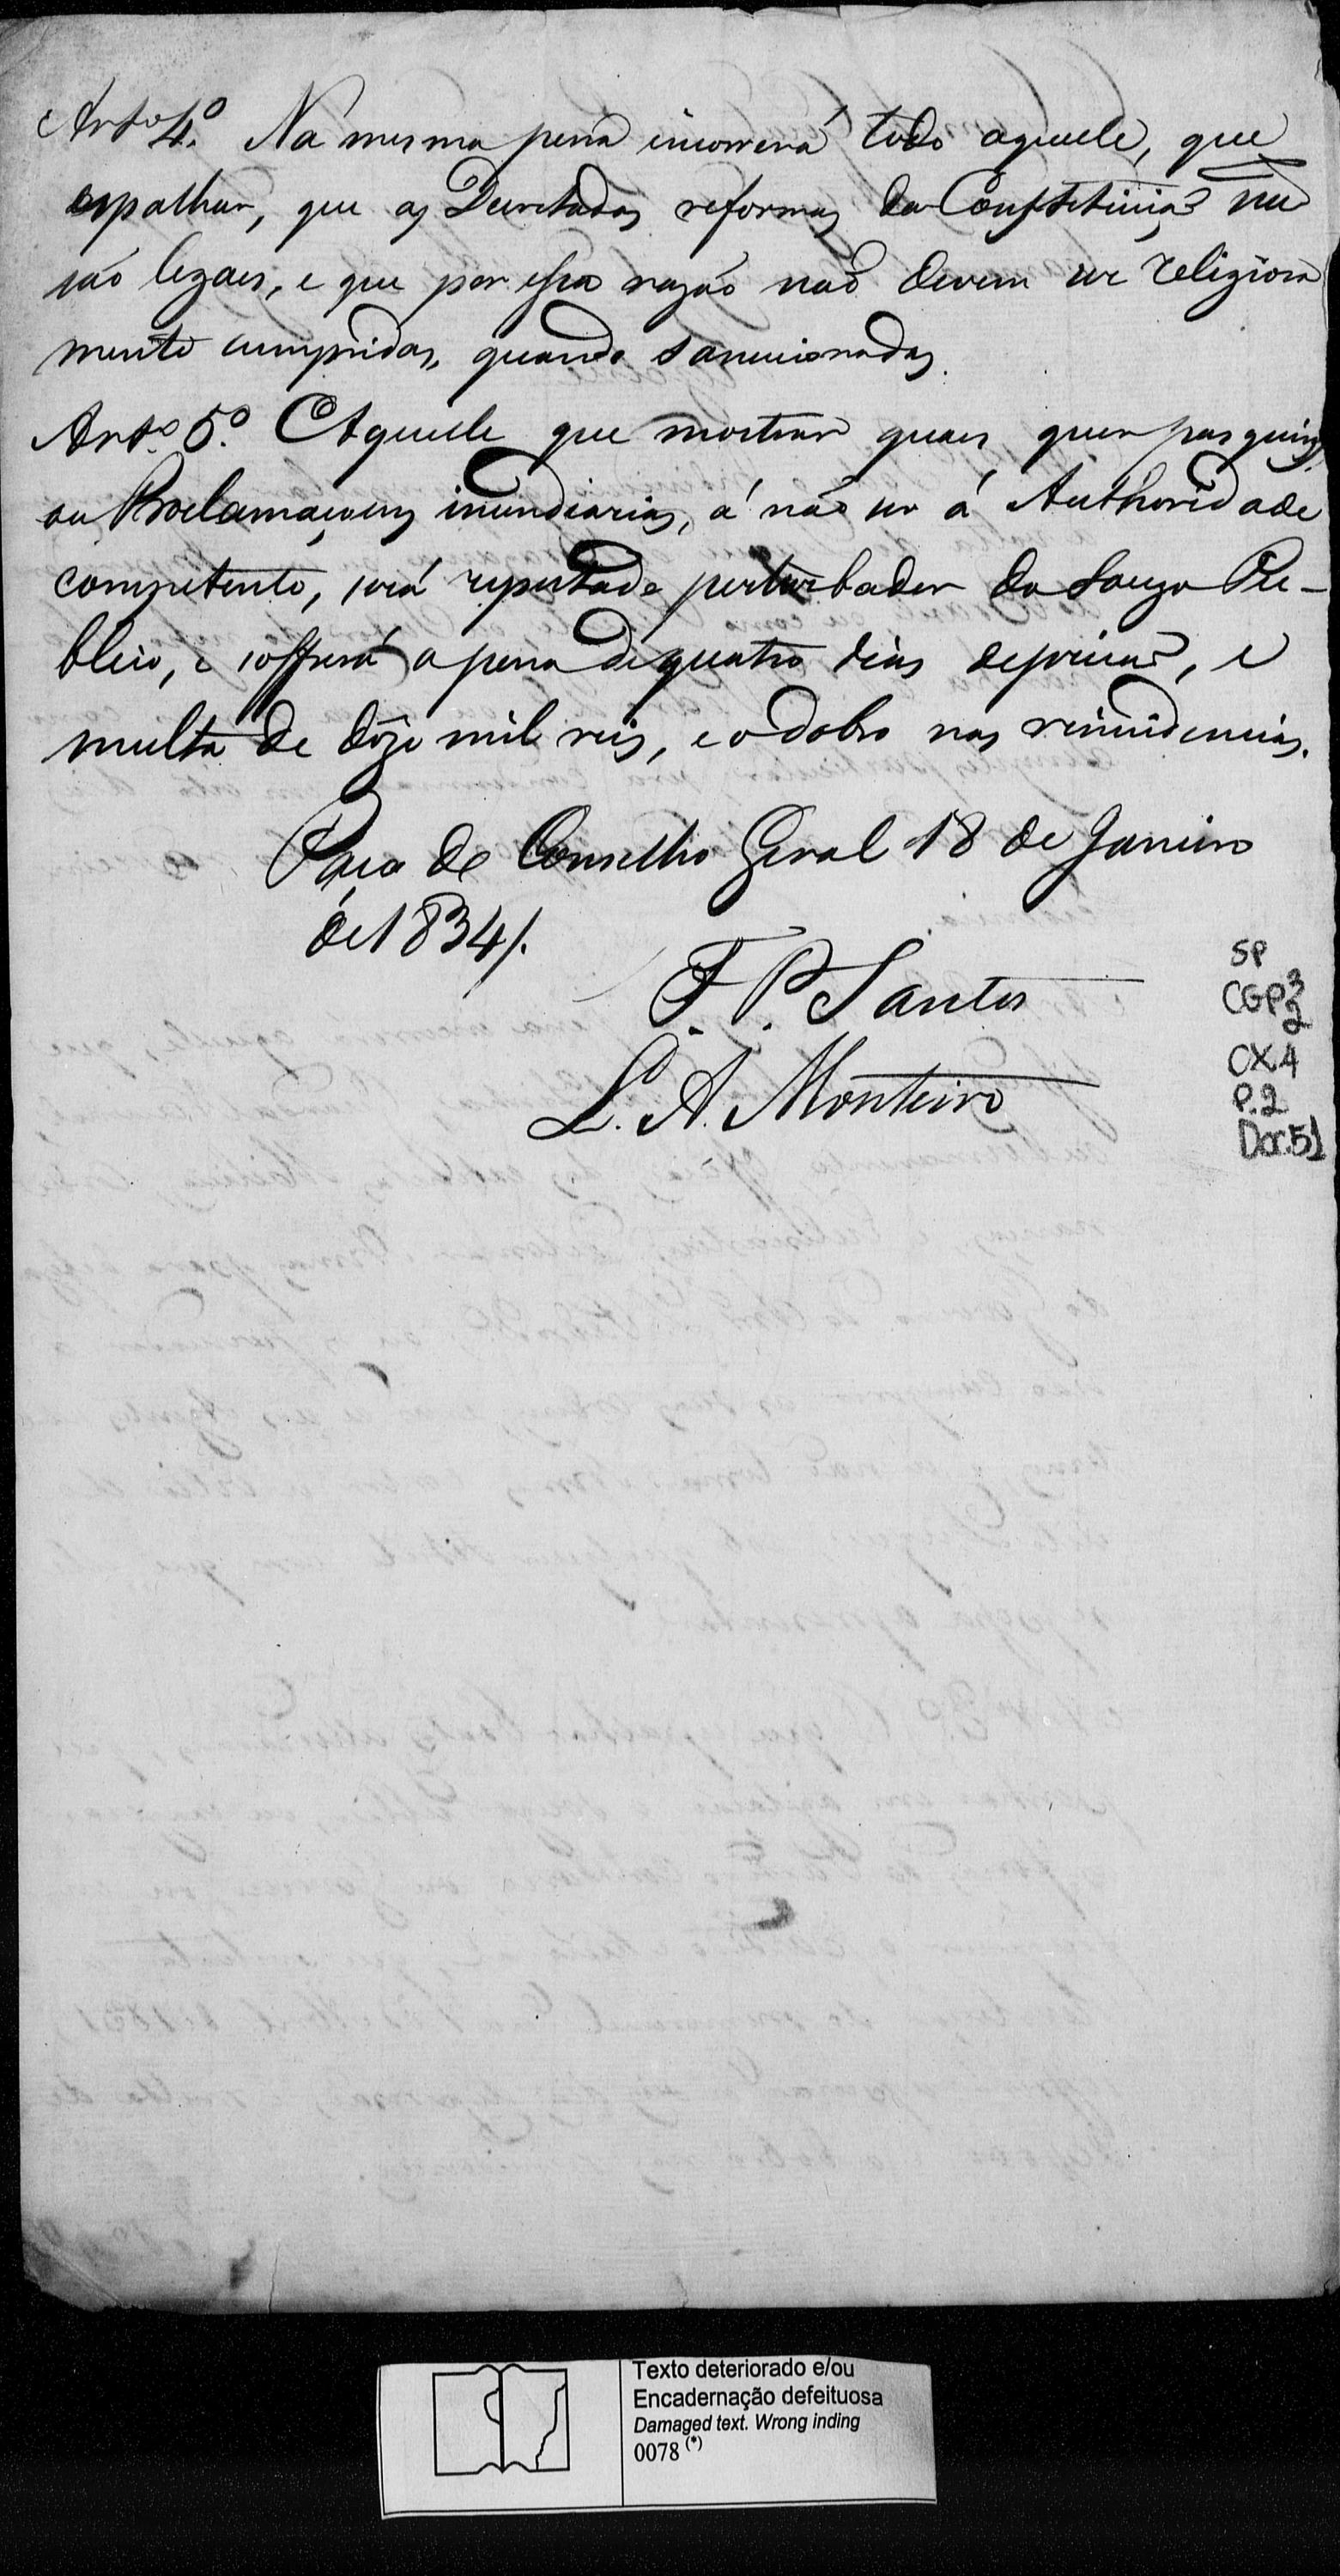 Art.º 4.º Na mesma pena incorrerá todo aquele, que
espalhar, que as Decretadas reformas da Constituição não
são legaes, e que por essa razão não devem ser religiosa
mente cumpridas, quando sanccionadas.
Art.º 5.º Aquelle que mostrar quaes quer pasquins,
ou Proclamaçoens incendiarias, á não ser á Authoridade
competente, será reputado perturbador do Socego Pu-
blico, e soffrerá a pena de quatro dias de prizão, e
multa de doze mil reis, e o dobro nas reincidencias.
Paço do Conselho Geral 18 de Janeiro
de 1834/.
F. P. Santos
L. A. Monteiro
SP
CGP3
2
CX.4
P.2
Doc.51
Texto deteriorado e/ou
Encadernação defeituosa
Damaged text. Wrong inding
0078 (*)